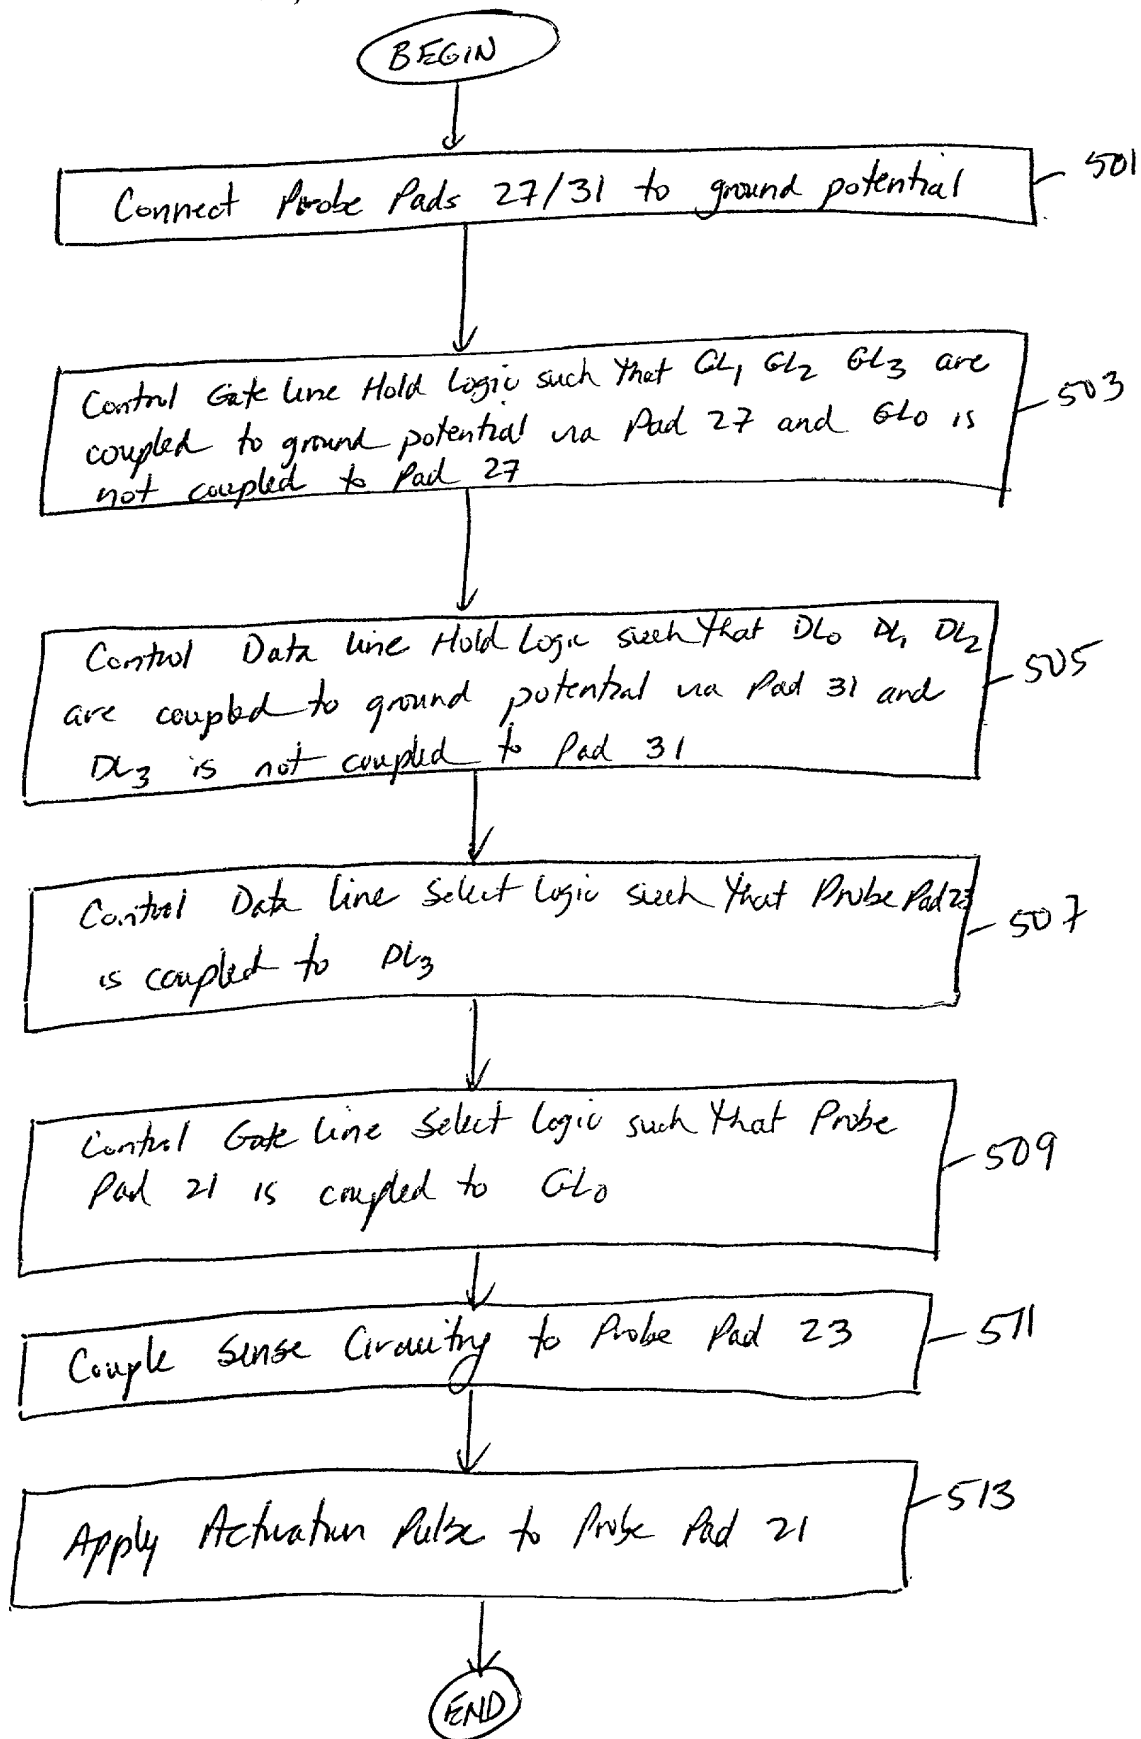 BEGIN
Connect Probe Pads 27/31 to ground potential
501
Control Gate line Hold Logic such that GL1 GL2 GL3 are
coupled to ground potential via Pad 27 and GL0 is
not coupled to Pad 27
503
Control Data line Hold Logic such that DL0 DL1 DL2
are coupled to ground potential via Pad 31 and
DL3 is not coupled to Pad 31
505
Control Data line Select Logic such that Probe Pad 23
is coupled to DL3
507
Control Gate line Select Logic such that Probe
Pad 21 is coupled to GL0
509
Couple Sense Circuitry to Probe Pad 23
511
Apply Activation Pulse to Probe Pad 21
513
END